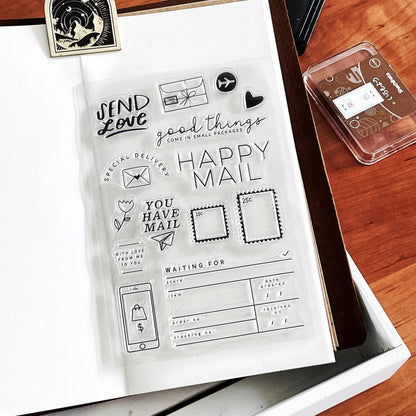 SEND
Love
good things
COME IN SMALL PACKAGES
SPECIAL DELIVERY
HAPPY
MAIL
YOU
HAVE
MAIL
15¢
25¢
WITH LOVE
FROM ME
TO YOU
WAITING FOR
store
item
date
ordered
/ /
order no.
received
/ /
tracking no.
$